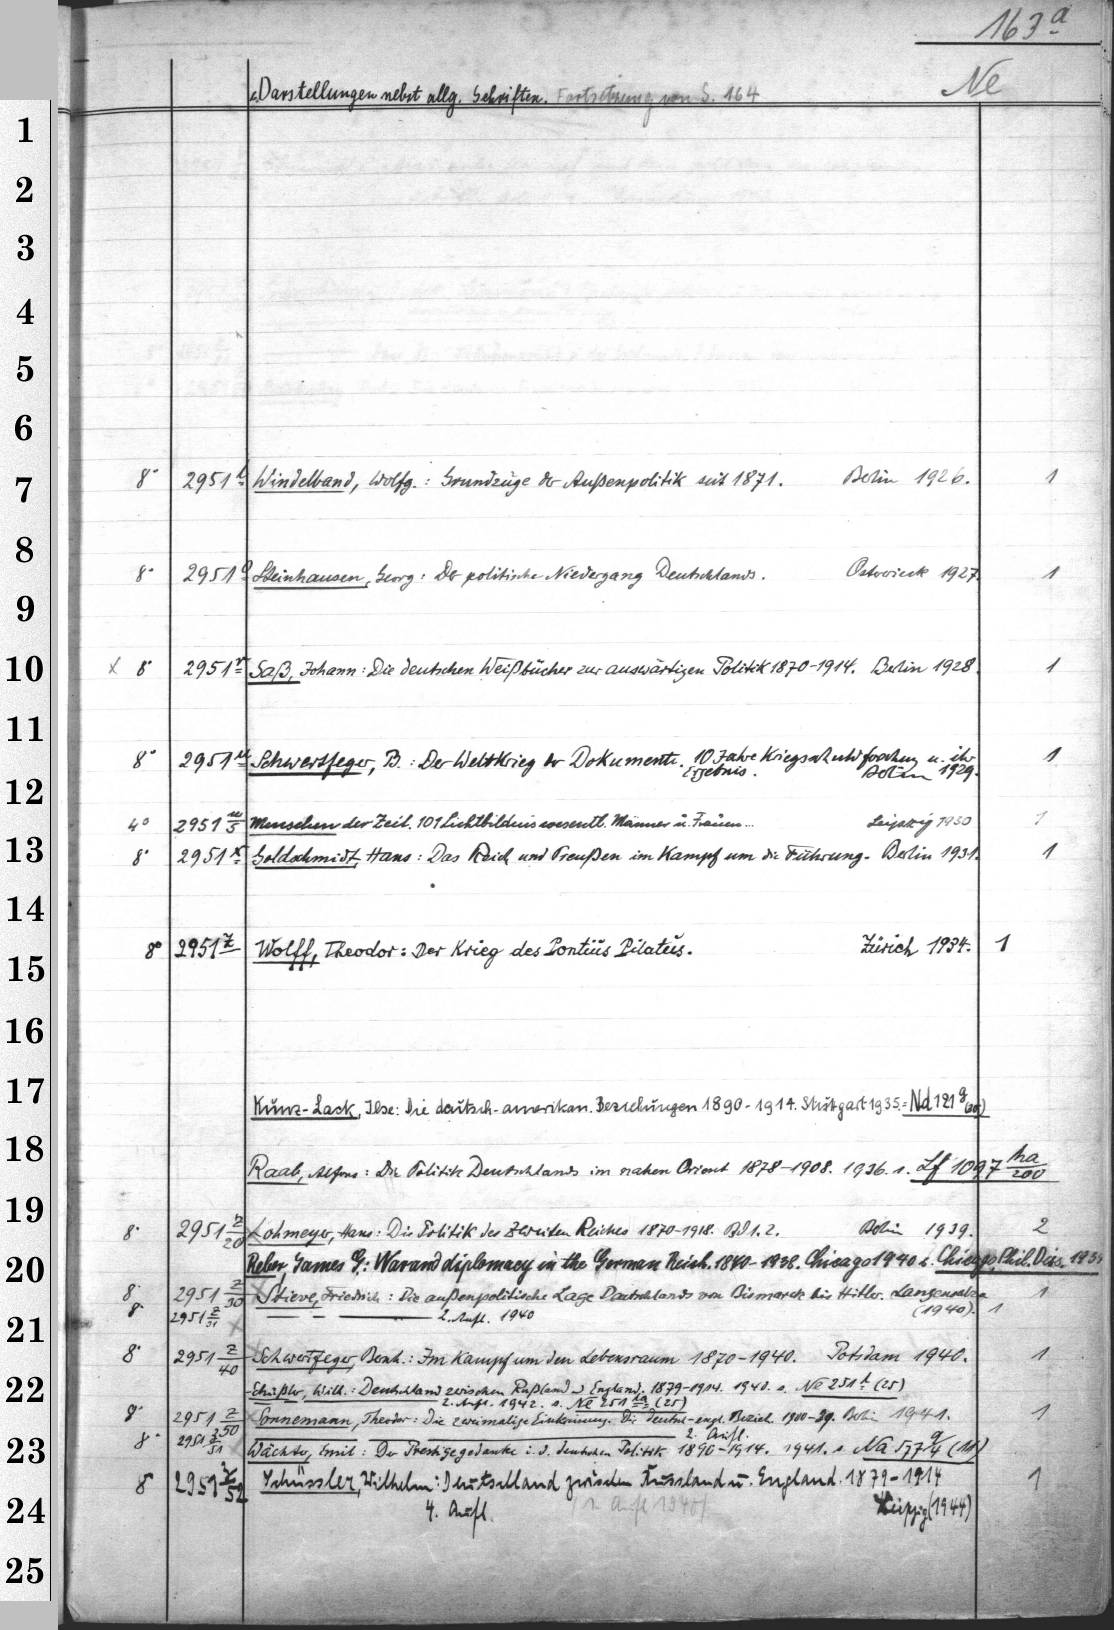 163a
c. Darstellungen nebst allg. Schriften. Fortsetzung von S. 164 Ne
1
2
3
4
5
6
7 8° 2951 Windelband, Wolfg.: Grundzüge der Außenpolitik seit 1871. Berlin 1926. 1
8 8° 2951 q Steinhausen, Georg: Der politische Niedergang Deutschlands. Osterwieck 1927. 1
9
10 X 8° 2951 r Saß, Johann: Die deutschen Weißbücher zur auswärtigen Politik 1870-1914. Berlin 1928. 1
11
8° 2951 u Schwertfeger, B.: Der Weltkrieg der Dokumente. 10 Jahre Kriegsschuldforschung u. ihr
12 Ergebnis. Berlin 1929. 1
4° 2951 w/5 Menschen der Zeit. 101 Lichtbildnis wesentl. Männer u. Frauen... Leipzig 1930 1
13 8° 2951 x Goldschmidt, Hans: Das Reich und Preußen im Kampf um die Führung. Berlin 1931. 1
14
15 8° 2951 z Wolff, Theodor: Der Krieg des Pontius Pilatus. Zürich 1934. 1
16
17 Kunz-Lack, Ilse: Die deutsch-amerikan. Beziehungen 1890-1914. Stuttgart 1935. = Nd 121 g
18 Raab, Alfons: Die Politik Deutschlands im nahen Orient 1878-1908. 1936. s. Lf 1097 ha/200
19 8° 2951 z/20 Lohmeyer, Hans: Die Politik des Zweiten Reiches 1870-1918. Bd 1.2. Berlin 1939. 2
20 Reber, James Q.: War and diplomacy in the German Reich. Chicago 1940 s. Chicago, Phil. Diss. 1939
8° 2951 z/30 Stieve, Friedrich: Die außenpolitische Lage Deutschlands von Bismarck bis Hitler. Langensalza 1
8° 2951 z/31 — — 2. Aufl. 1940 (1940). 1
21
8° 2951 z/40 Schwertfeger, Bernh.: Im Kampf um den Lebensraum 1870-1940. Potsdam 1940. 1
22 Schüßler, Wilh.: Deutschland zwischen Rußland u. England. 1879-1914. 1940. s. Ne 251 h (25)
2. Aufl. 1942. s. Ne 251 ha (25)
8° 2951 z/50 Sonnemann, Theodor: Die zweimalige Einkreisung. Die deutsch-engl. Bezieh. 1900-39. Berlin 1941. 1
8° 2951 z/51 2. Aufl.
23 Wächter, Emil: Der Prestigegedanke i. d. deutschen Politik 1890-1914. 1941. s. Na 577 q/4 (11)
8° 2951 z/52 Schüssler, Wilhelm: Deutschland zwischen Russland u. England. 1879-1914 1
24 4. Aufl. (1. Aufl. 1940) Leipzig (1944)
25